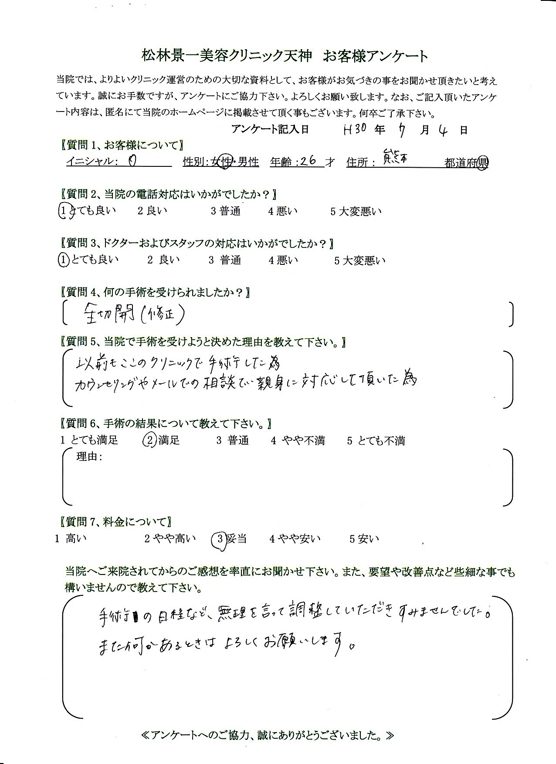 松林景一美容クリニック天神 お客様アンケート
当院では、よりよいクリニック運営のための大切な資料として、お客様がお気づきの事をお聞かせ頂きたいと考え
ています。誠にお手数ですが、アンケートにご協力下さい。よろしくお願い致します。なお、ご記入頂いたアンケ
ート内容は、匿名にて当院のホームページに掲載させて頂く事もございます。何卒ご了承下さい。
アンケート記入日 H30年 7月 4日
〖質問1、お客様について〗
イニシャル: 性別:女性・男性 年齢:26 才 住所: 熊本 都道府県
〖質問2、当院の電話対応はいかがでしたか?〗
1 とても良い 2 良い 3 普通 4 悪い 5 大変悪い
〖質問3、ドクターおよびスタッフの対応はいかがでしたか?〗
1 とても良い 2 良い 3 普通 4 悪い 5 大変悪い
〖質問4、何の手術を受けられましたか?〗
全切開(修正)
〖質問5、当院で手術を受けようと決めた理由を教えて下さい。〗
以前もここのクリニックで手術した為
カウンセリングやメールでの相談で親身に対応して頂いた為
〖質問6、手術の結果について教えて下さい。〗
1 とても満足 2 満足 3 普通 4 やや不満 5 とても不満
理由:
〖質問7、料金について〗
1 高い 2 やや高い 3 妥当 4 やや安い 5 安い
当院へご来院されてからのご感想を率直にお聞かせ下さい。また、要望や改善点など些細な事でも
構いませんので教えて下さい。
手術の日程など、無理を言って調整していただきすみませんでした。
また何かあるときはよろしくお願いします。
≪アンケートへのご協力、誠にありがとうございました。≫